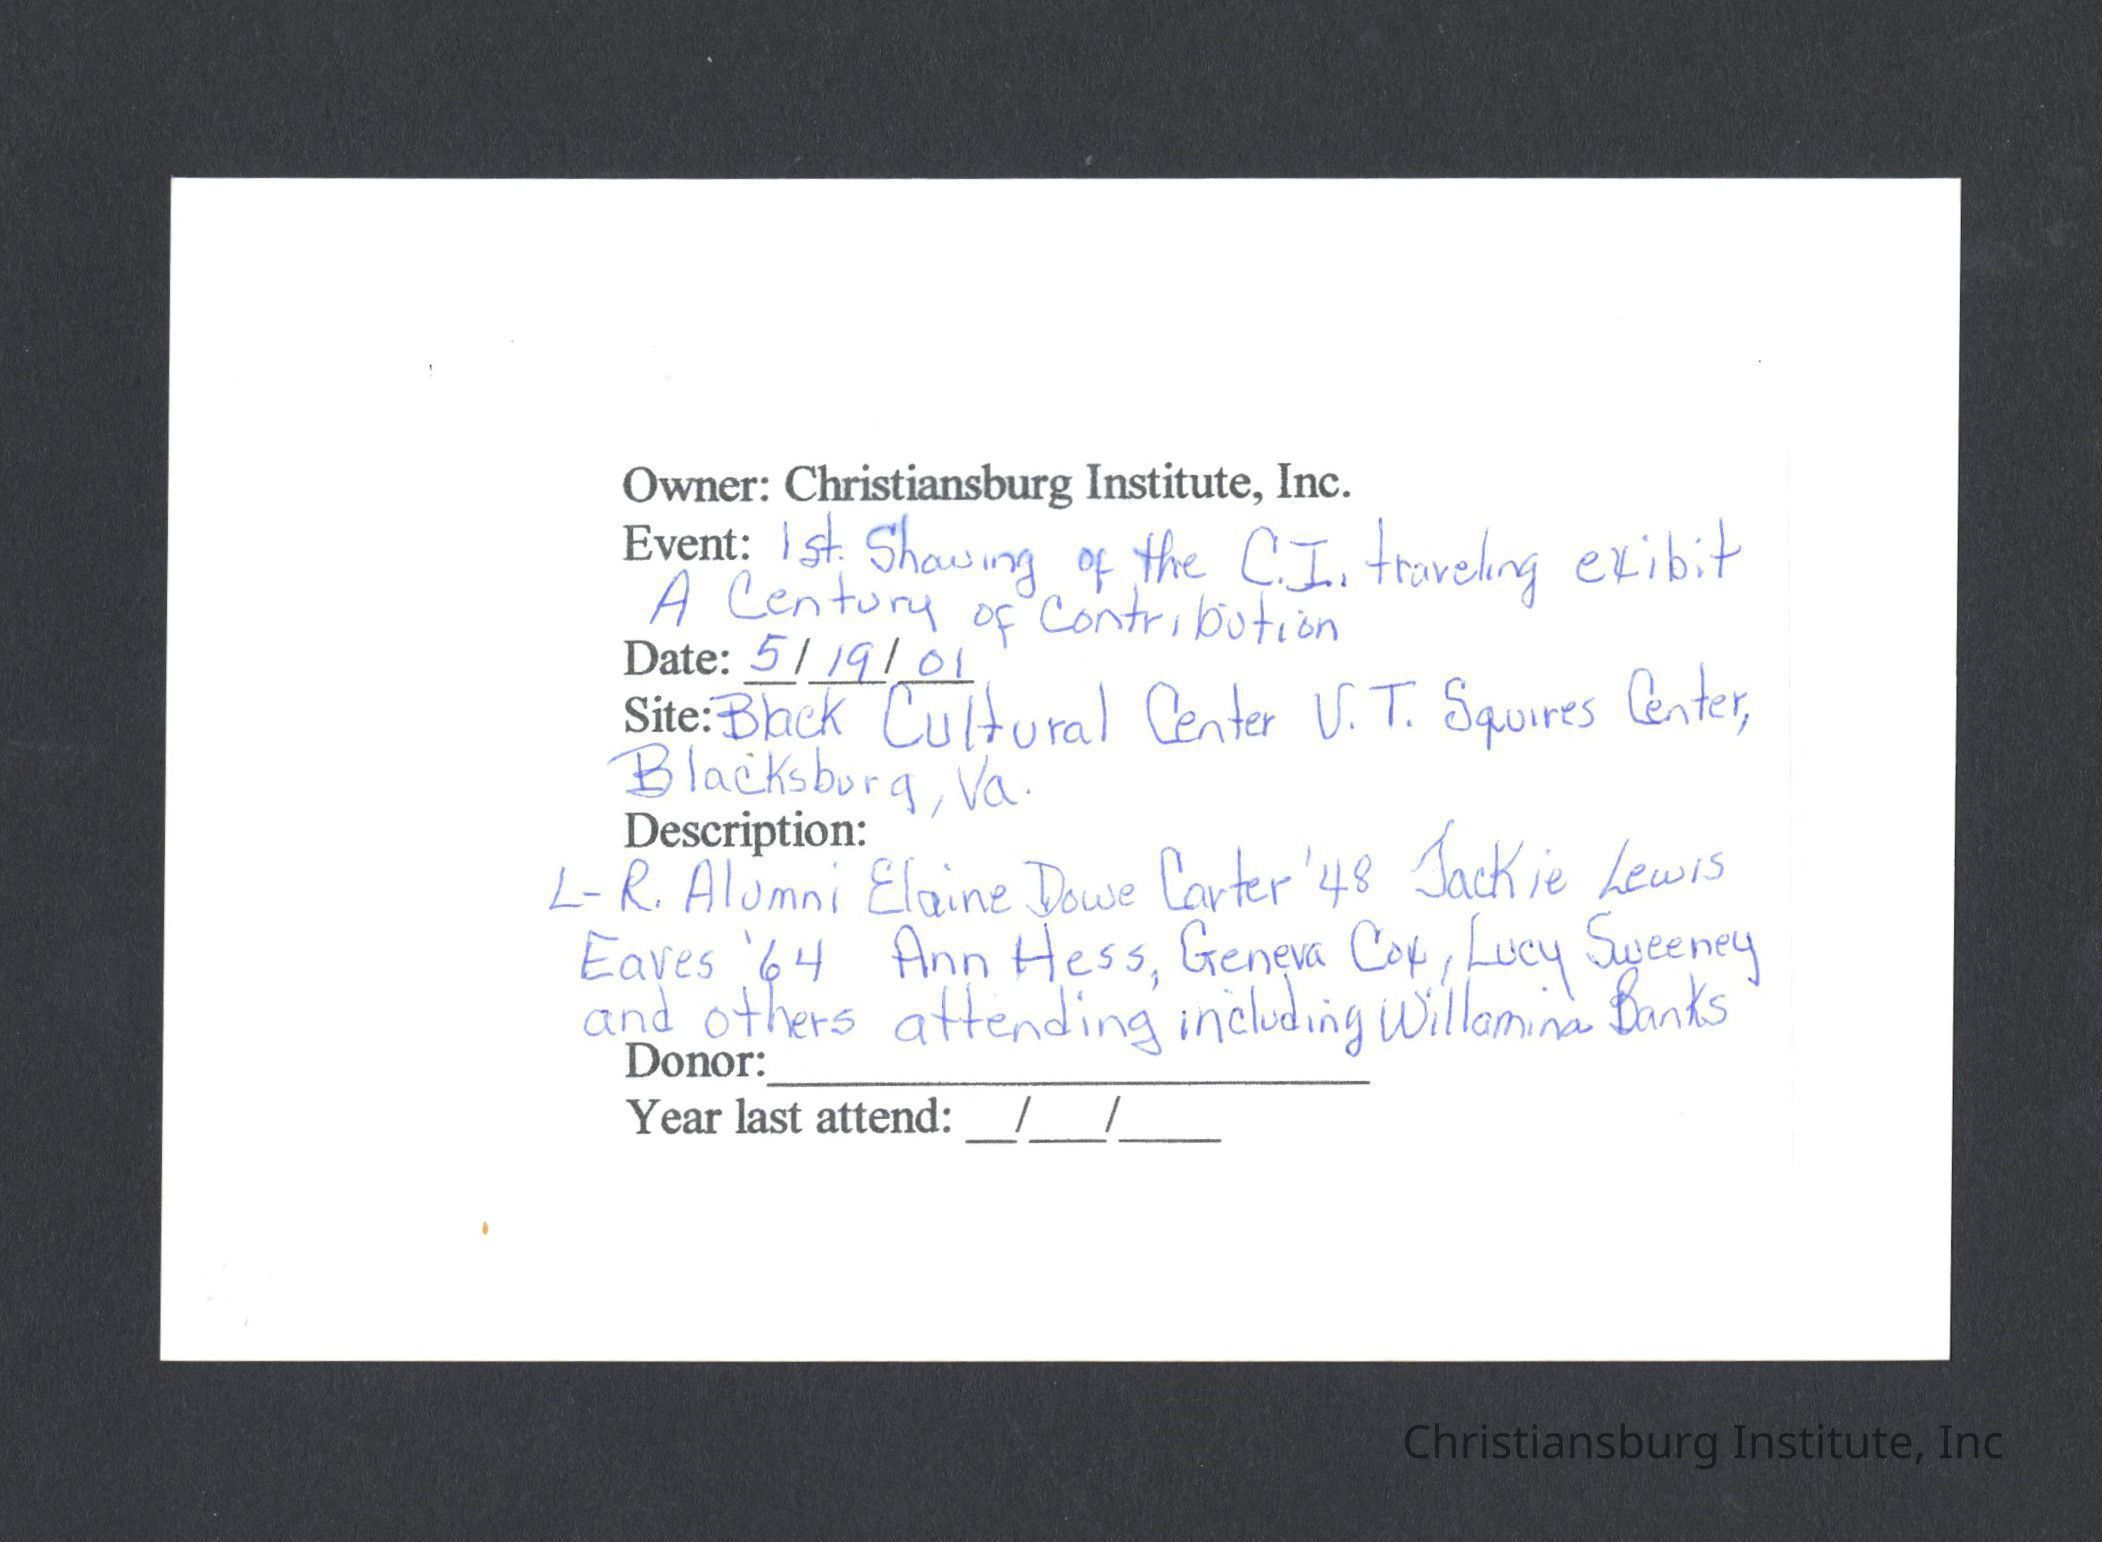 Owner: Christiansburg Institute, Inc.
Event: 1st. Showing of the C.I. traveling exibit
A Century of Contribution
Date: 5/19/01
Site: Black Cultural Center V.T. Squires Center,
Blacksburg, Va.
Description:
L-R. Alumni Elaine Dowe Carter '48 Jackie Lewis
Eaves '64 Ann Hess, Geneva Cox, Lucy Sweeney
and others attending including Willamina Banks
Donor:
Year last attend: __/___/____
Christiansburg Institute, Inc